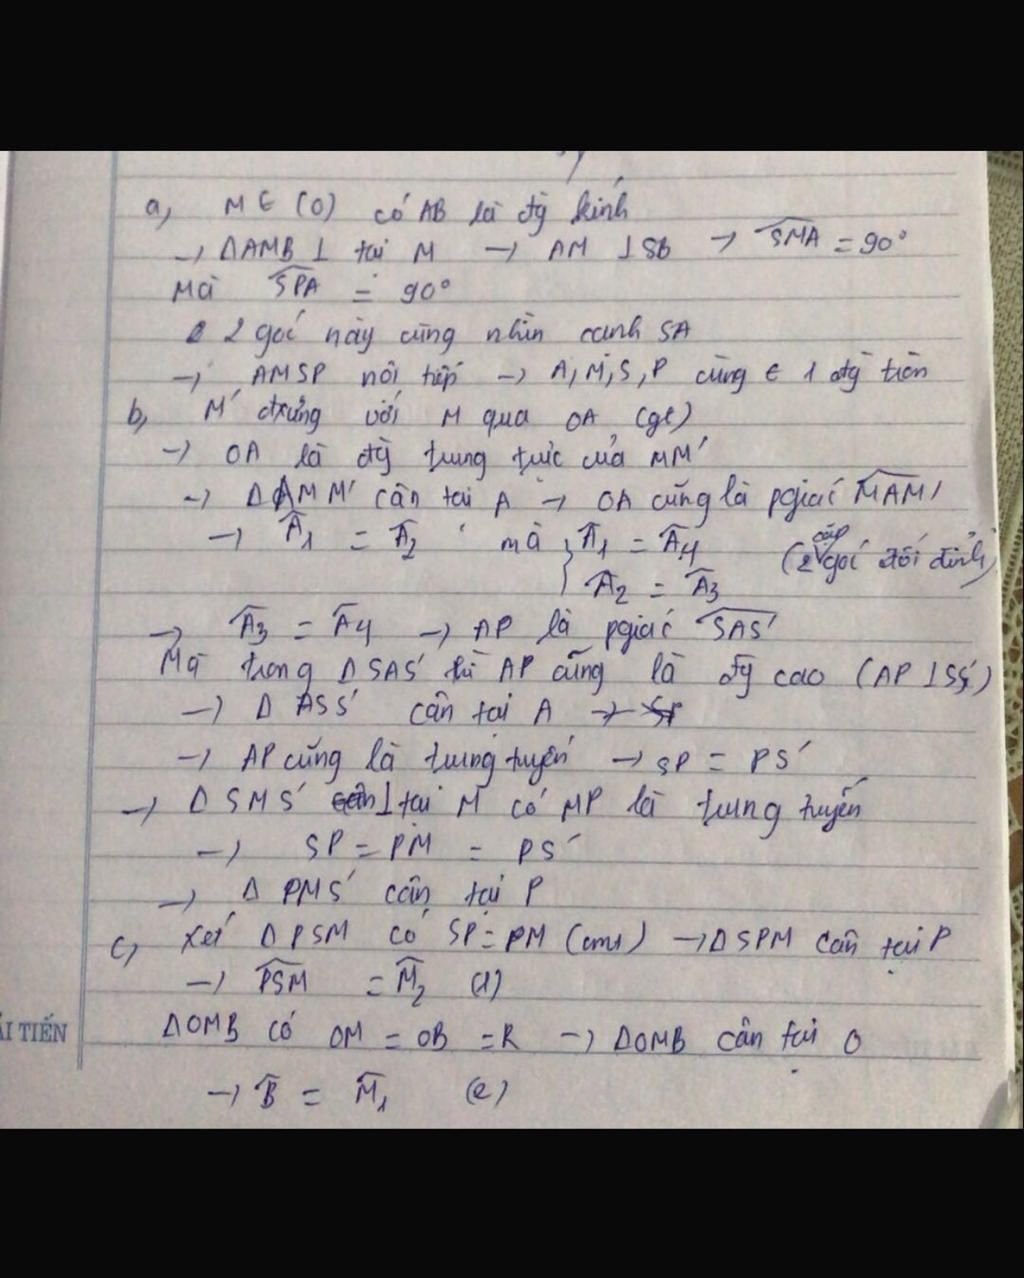 a, M ∈ (O) có AB là đg kính
→ ΔAMB ⊥ tại M → AM ⊥ SB → SMA = 90°
Mà SPA = 90°
2 góc này cùng nhìn cạnh SA
→ AMSP nội tiếp → A, M, S, P cùng ∈ 1 đg tròn
b, M' đxứng với M qua OA (gt)
→ OA là đg trung trực của MM'
→ Δ AMM' cân tại A → OA cũng là pgiác MAM'
→ A1 = A2 mà } A1 = A4 (2 cặp góc đối đỉnh)
A2 = A3
→ A3 = A4 → AP là pgiác SAS'
Mà trong Δ SAS' thì AP cũng là đg cao (AP ⊥ SS')
→ Δ ASS' cân tại A
→ AP cũng là trung tuyến → SP = PS'
→ Δ SMS' ⊥ tại M có MP là trung tuyến
→ SP = PM = PS'
→ Δ PMS' cân tại P
c, Xét Δ PSM có SP = PM (cmt) → Δ SPM cân tại P
→ PSM = M2 (1)
ΔOMB có OM = OB = R → ΔOMB cân tại O
→ B = M1 (2)
ẢI TIẾN